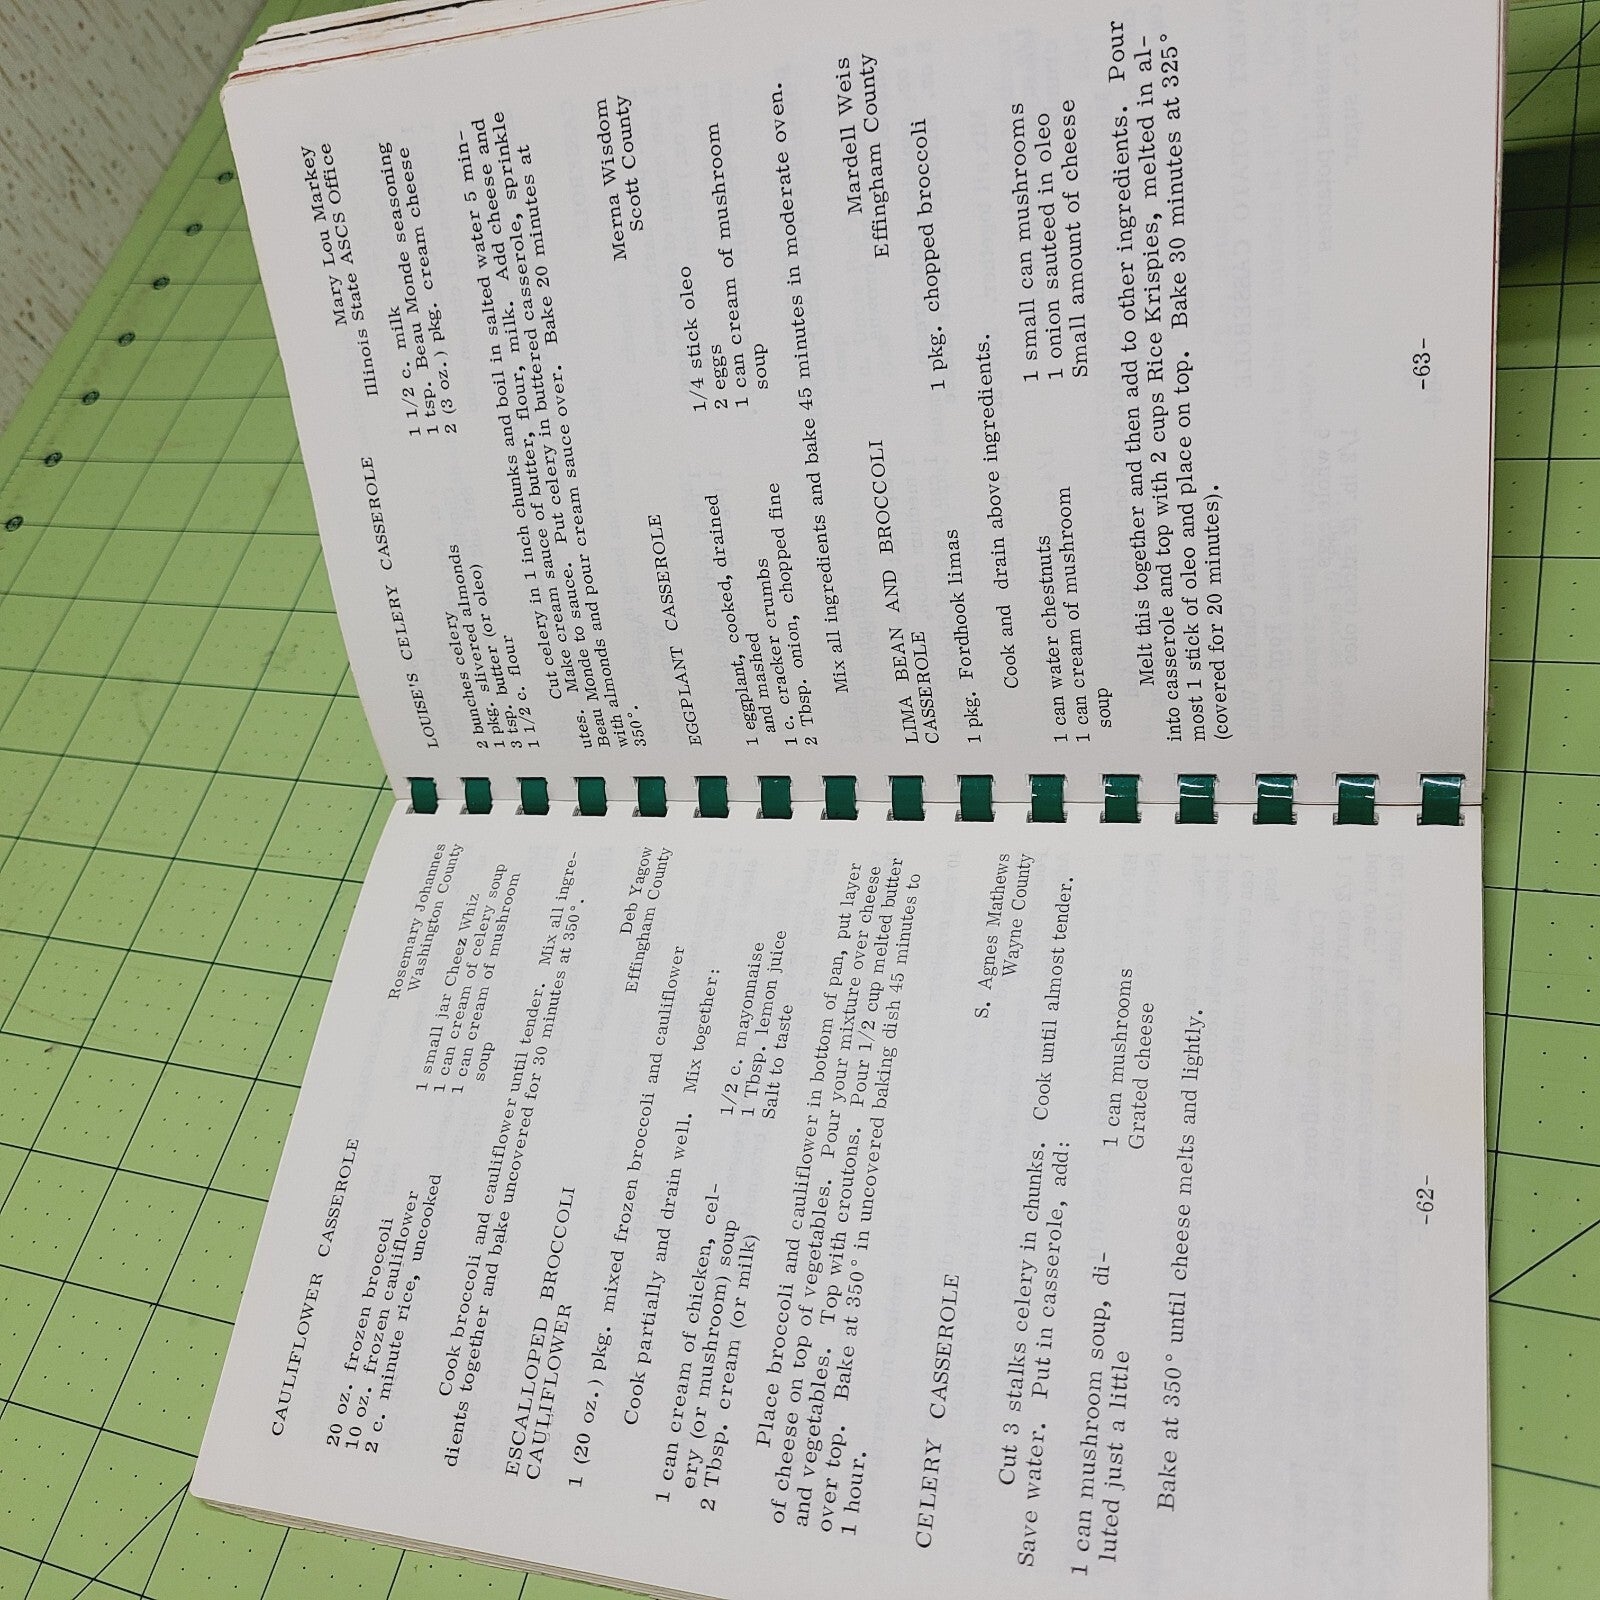 CAULIFLOWER CASSEROLE
Rosemary Johannes
Washington County
20 oz. frozen broccoli
10 oz. frozen cauliflower
2 c. minute rice, uncooked
1 small jar Cheez Whiz
1 can cream of celery soup
1 can cream of mushroom
soup
Cook broccoli and cauliflower until tender. Mix all ingre-
dients together and bake uncovered for 30 minutes at 350°.
ESCALLOPED BROCCOLI
CAULIFLOWER
Deb Yagow
Effingham County
1 (20 oz.) pkg. mixed frozen broccoli and cauliflower
Cook partially and drain well. Mix together:
1 can cream of chicken, cel-
ery (or mushroom) soup
2 Tbsp. cream (or milk)
1/2 c. mayonnaise
1 Tbsp. lemon juice
Salt to taste
Place broccoli and cauliflower in bottom of pan, put layer
of cheese on top of vegetables. Pour your mixture over cheese
and vegetables. Top with croutons. Pour 1/2 cup melted butter
over top. Bake at 350° in uncovered baking dish 45 minutes to
1 hour.
CELERY CASSEROLE
S. Agnes Mathews
Wayne County
Cut 3 stalks celery in chunks. Cook until almost tender.
Save water. Put in casserole, add:
1 can mushroom soup, di-
luted just a little
1 can mushrooms
Grated cheese
Bake at 350° until cheese melts and lightly.
-62-
LOUISE'S CELERY CASSEROLE
Mary Lou Markey
Illinois State ASCS Office
2 bunches celery
1 pkg. slivered almonds
3 tsp. butter (or oleo)
1 1/2 c. flour
1 1/2 c. milk
1 tsp. Beau Monde seasoning
2 (3 oz.) pkg. cream cheese
Cut celery in 1 inch chunks and boil in salted water 5 min-
utes. Make cream sauce of butter, flour, milk. Add cheese and
Beau Monde to sauce. Put celery in buttered casserole, sprinkle
with almonds and pour cream sauce over. Bake 20 minutes at
350°.
EGGPLANT CASSEROLE
Merna Wisdom
Scott County
1 eggplant, cooked, drained
and mashed
1 c. cracker crumbs
2 Tbsp. onion, chopped fine
1/4 stick oleo
2 eggs
1 can cream of mushroom
soup
Mix all ingredients and bake 45 minutes in moderate oven.
LIMA BEAN AND BROCCOLI
CASSEROLE
Mardell Weis
Effingham County
1 pkg. Fordhook limas
1 pkg. chopped broccoli
Cook and drain above ingredients.
1 can water chestnuts
1 can cream of mushroom
soup
1 small can mushrooms
1 onion sauteed in oleo
Small amount of cheese
Melt this together and then add to other ingredients. Pour
into casserole and top with 2 cups Rice Krispies, melted in al-
most 1 stick of oleo and place on top. Bake 30 minutes at 325°
(covered for 20 minutes).
-63-